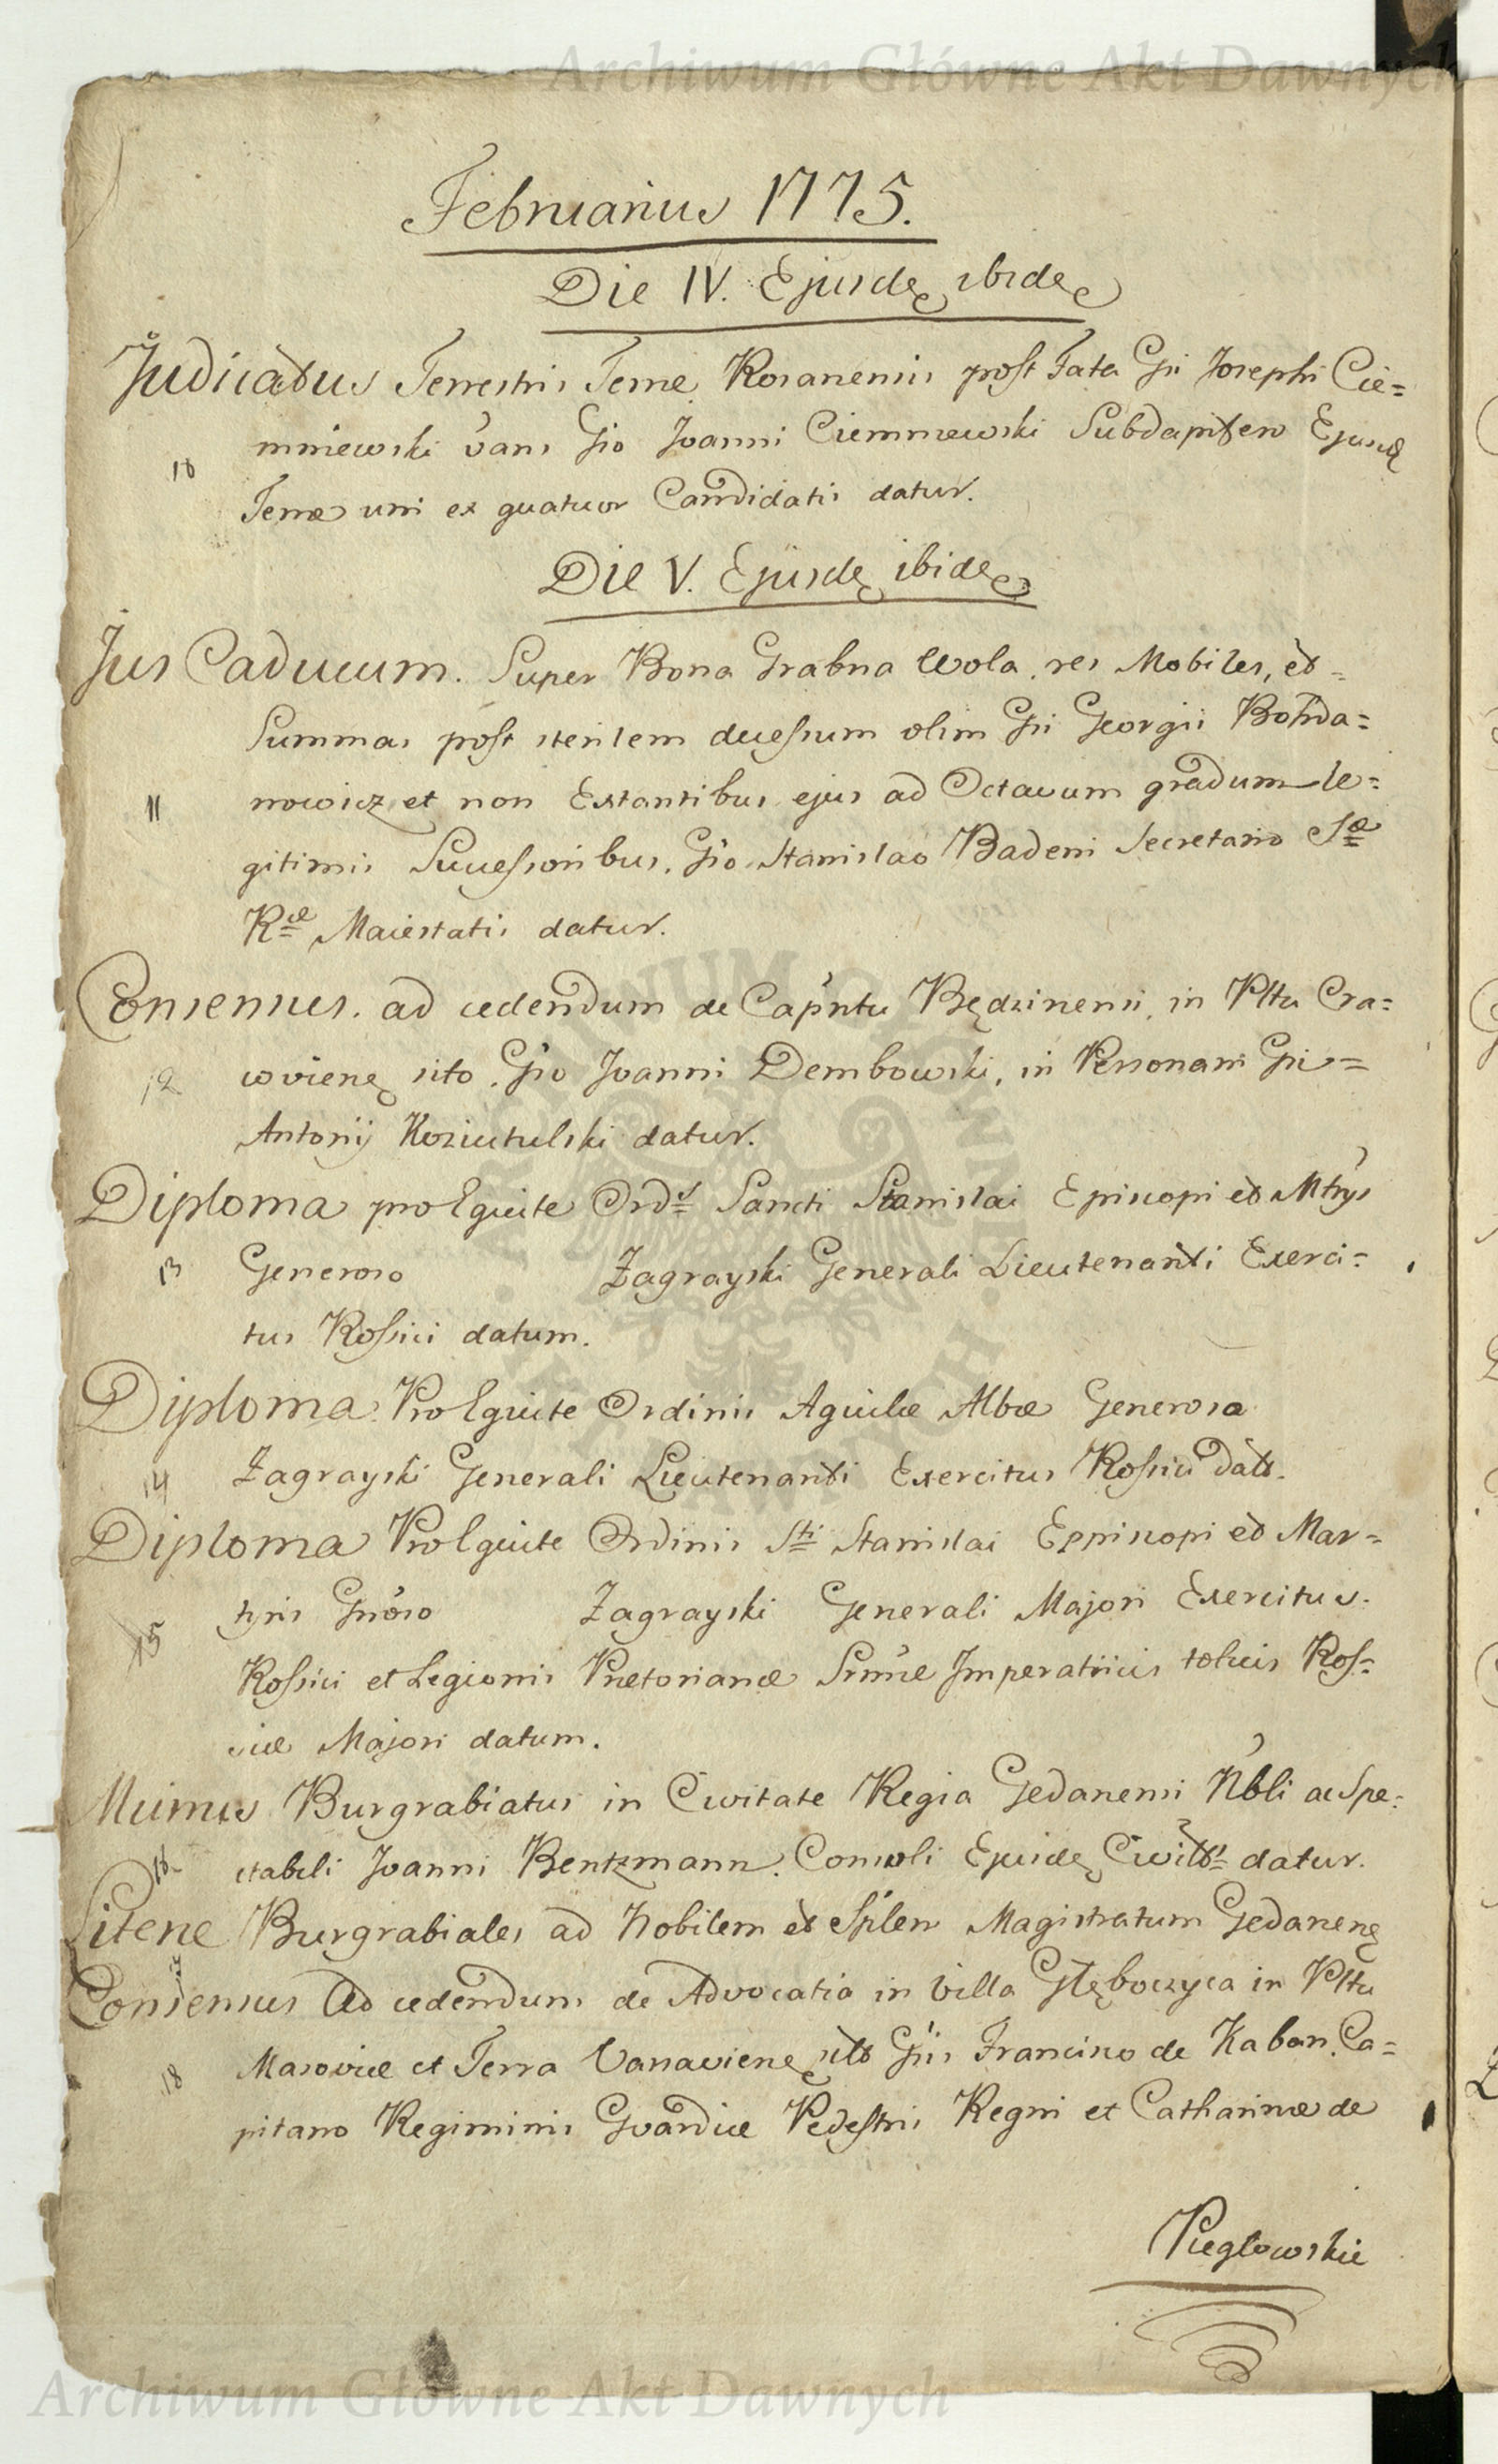 Archiwum Główne Akt Dawnych
Februarius 1775.
Die IV. Ejusdę ibidę
Judicatus Terrestris Terræ Rosanensis post Fata Gsi Josephi Cie=
mniewski vans Gso Joanni Ciemniewski Subdapifero Ejusdę
10
Terræ uni ex quatuor Candidatis datur.
Die V. Ejusdę ibidę
Jus Caducum. Super Bona Grabna Wola, res Mobiles, et=
Summas post sterilem decessum olim Gsi Georgii Bohda=
11 nowicz et non Extantibus ejus ad Octavum gradum le=
gitimis Successoribus, Gso Stanislao Badeni Secretario Sæ
Ræ Maiestatis datur.
Consensus. ad cedendum de Capntu Będzinensi, in Pltu Cra=
12 covienę sito, Gso Joanni Dembowski, in Personam Gsi=
Antonij Koziutulski datur.
Diploma pro Equite Ords Sancti Stanislai Episcopi et Mtrys
13 Generoso Zagrayski Generali Lieutenanti Exerci=
tus Rossici datum.
Diploma Pro Equite Ordinis Aquilæ Albæ Generoso
14 Zagrayski Generali Lieutenanti Exercitus Rossici datt.
Diploma Pro Equite Ordinis Sti Stanislai Eppiscopi et Mar=
tyris Gnoso Zagrayski Generali Majori Exercitus.
15
Rossici et Legionis Prætorianæ Srmæ Imperatricis totius Ros=
siæ Majori datum.
Munus Burgrabiatus in Civitate Regia Gedanensi Nbli ac Spe=
ctabili Joanni Bentzmann. Consuli Ejusdę Civitts datur.
Literæ Burgrabiales ad Nobilem et Splem Magistratum Gedanenę
Consensus Ad cedendum de Advocatia in villa Głęboczyca in Pltu
18 Masoviæ et Terra Varsavienę sito Gsis Francisco de Kaban, Ca=
pitano Regiminis Gvardiæ Pedestris Regni et Catharinæ de
Pieglowskie
Archiwum Główne Akt Dawnych